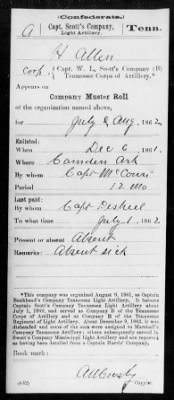 (Confederate.)
A | Capt. Scott's Company, Light Artillery. | Tenn.
H Allen
Corp., Capt. W. L. Scott's Company (B) Tennessee Corps of Artillery.*
Appears on
Company Muster Roll
of the organization named above,
for July & Aug, 1862
Enlisted:
When Dec 6, 1861.
Where Camden Ark
By whom Capt
Period 12 mo
Last paid:
By whom Capt
To what time July 1, 1862.
Present or absent Absent
Remarks: Absent sick
*This company was organized August 9, 1861, as Captain
Company Tennessee Light Artillery. It became Captain Scott's Company Tennessee Light Artillery about
1862, and served as Company B of the Tennessee
Corps of Artillery and as Company B of the Tennessee
Regiment of Light Artillery. About December 9, 1862, it was
disbanded and some of the men were assigned to Marshall's
Company Tennessee Artillery; others subsequently served in
Company Mississippi Light Artillery and are reported
as having been detailed from a Captain Company.
Book mark:
Copyist.